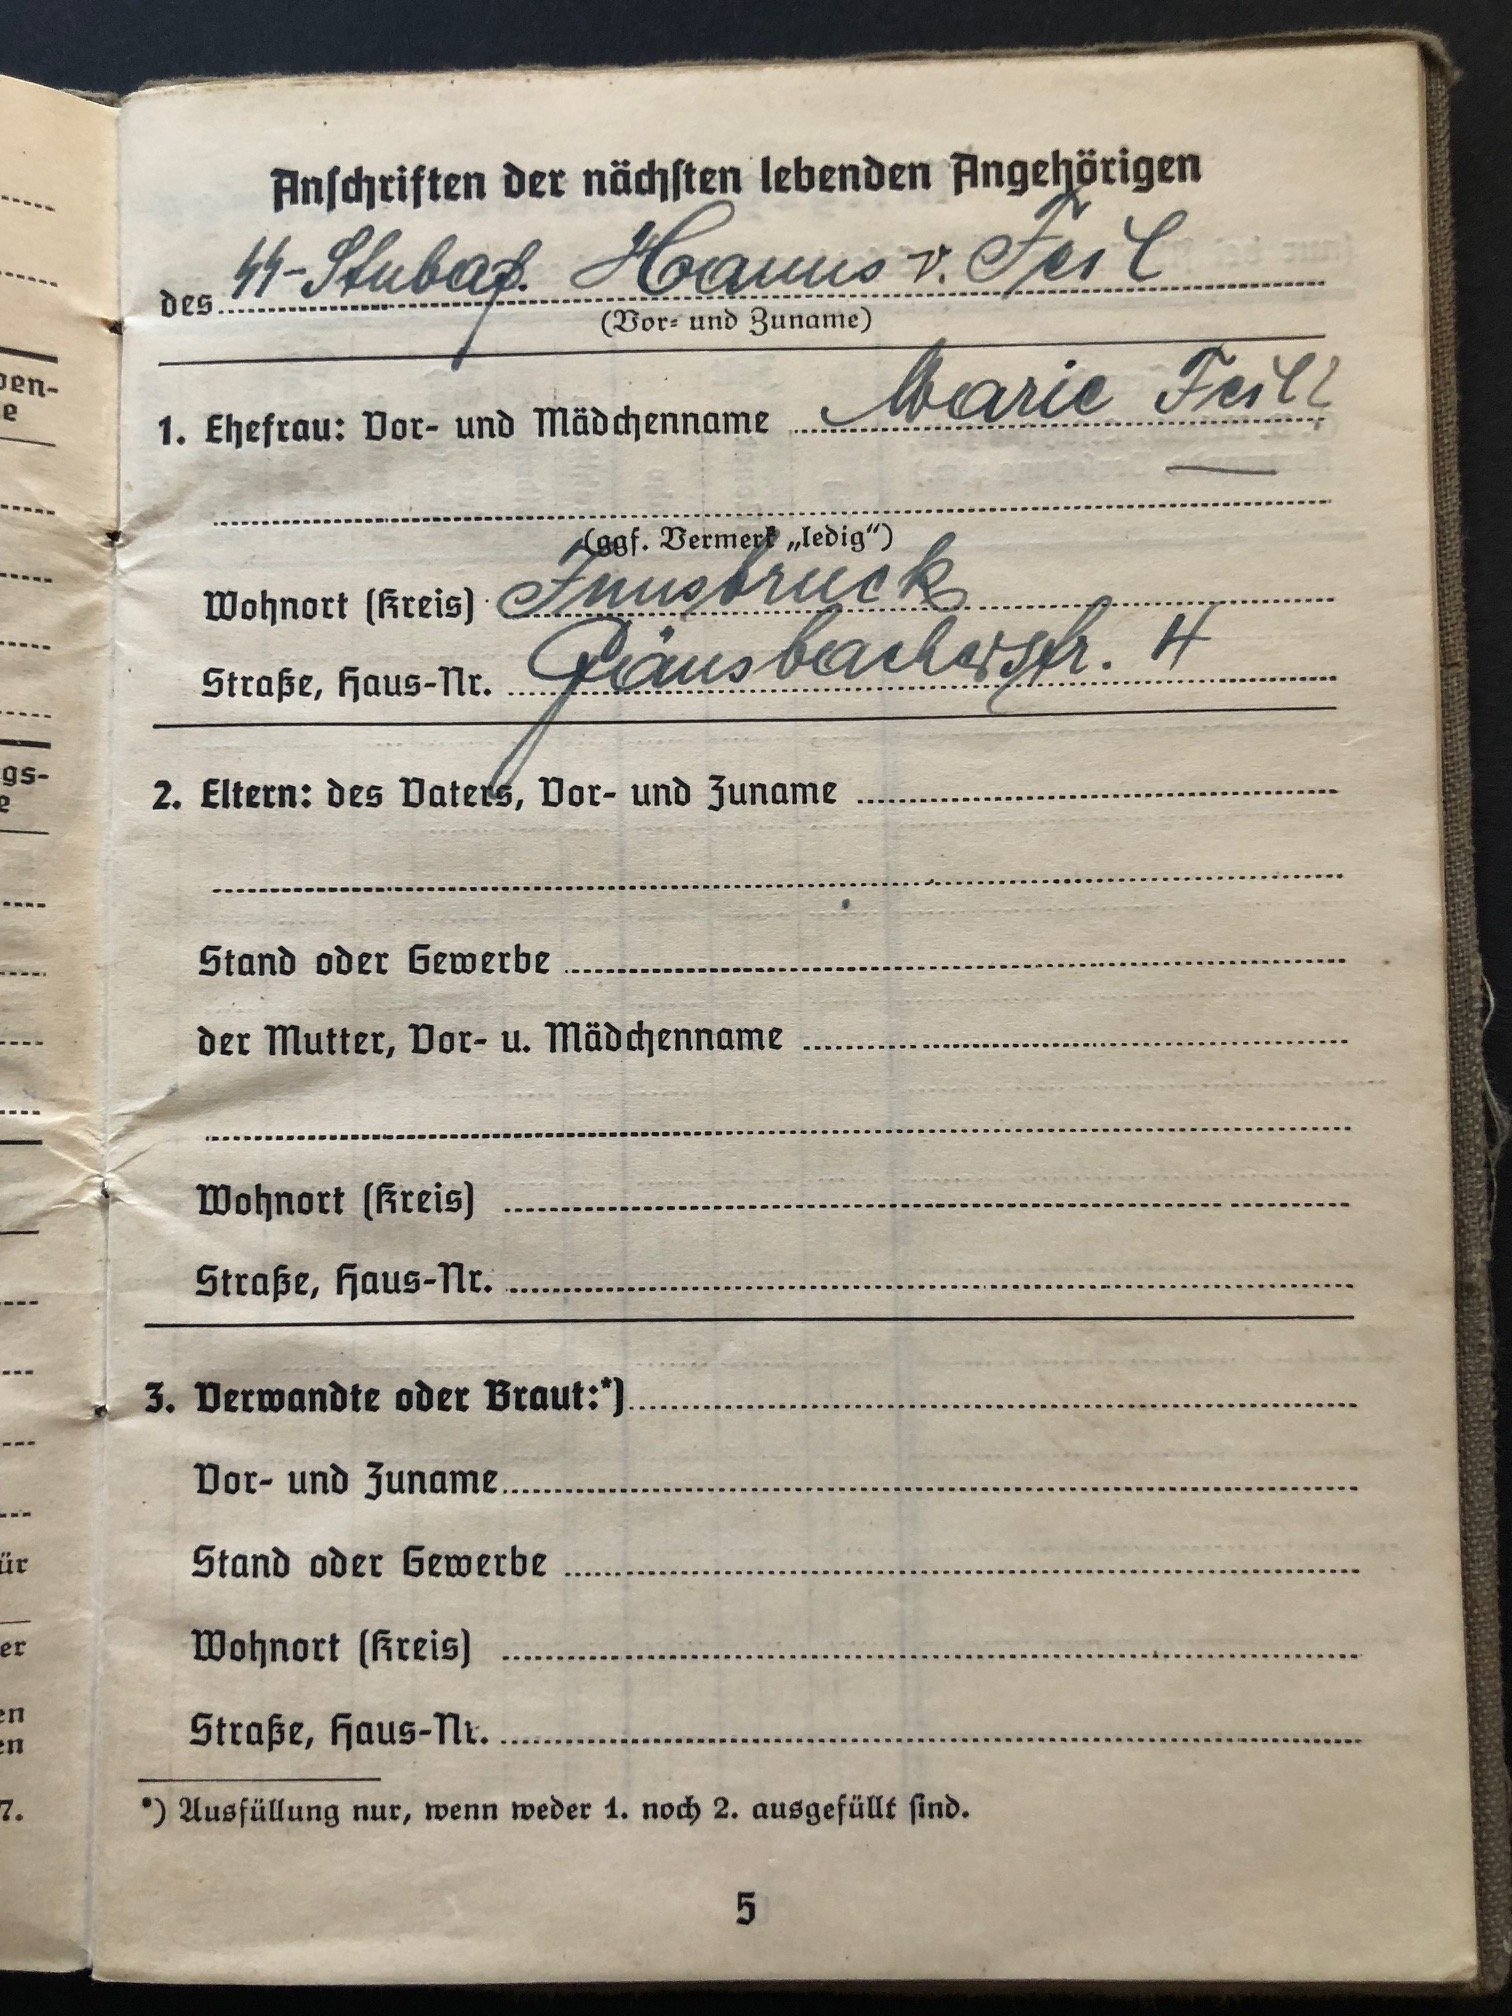 Anschriften der nächsten lebenden Angehörigen
des SS-Stubaf. Hanns v. Feil
(Vor- und Zuname)
1. Ehefrau: Vor- und Mädchenname Marie Feill
(ggf. Vermerk „ledig“)
Wohnort (Kreis) Innsbruck
Straße, Haus-Nr. Gänsbacherstr. 4
2. Eltern: des Vaters, Vor- und Zuname
Stand oder Gewerbe
der Mutter, Vor- u. Mädchenname
Wohnort (Kreis)
Straße, Haus-Nr.
3. Verwandte oder Braut:*)
Vor- und Zuname
Stand oder Gewerbe
Wohnort (Kreis)
Straße, Haus-Nr.
*) Ausfüllung nur, wenn weder 1. noch 2. ausgefüllt sind.
5